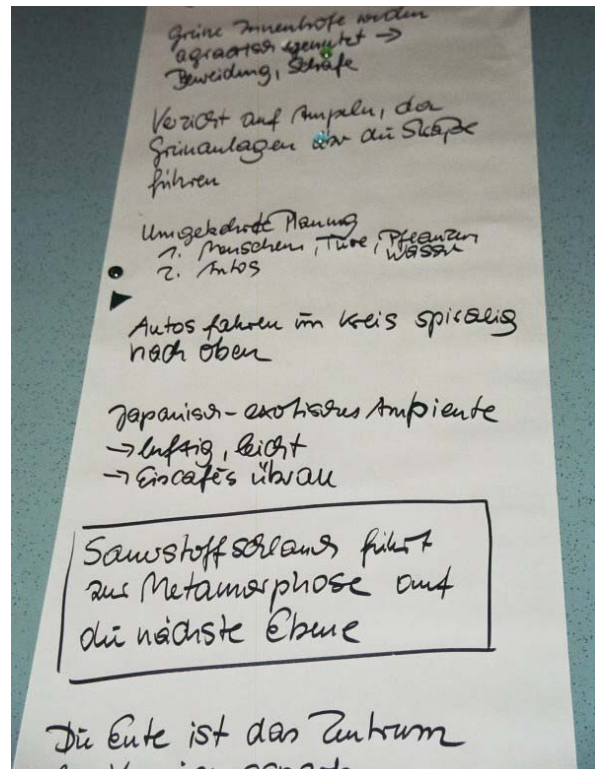 Grüne Innenhöfe werden
agrarisch genutzt →
Beweidung, Schafe
Verzicht auf Ampeln, da
Grünanlagen über die Straße
führen
Umgekehrte Planung
1. Menschen, Tiere, Pflanzen
Wasser
2. Autos
Autos fahren im Kreis spiralig
nach oben
Japanisch-exotisches Ambiente
→ luftig, leicht
→ Eiscafés überall
Sauerstoffschlauch führt
zur Metamorphose auf
die nächste Ebene
Die Ente ist das Zentrum